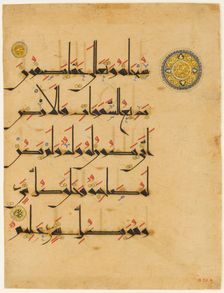 سبحنه وتعلى عما يصفون
بديع السموات والارض
انى يكون له ولد ولم تكن
له صحبة وخلق كل شيء
وهو بكل شيء عليم